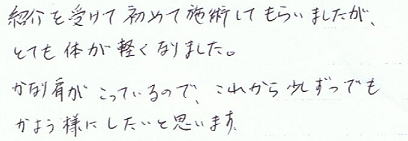 紹介を受けて初めて施術してもらいましたが、
とても体が軽くなりました。
かなり肩がこっているので、これから少しずつでも
かよう様にしたいと思います。